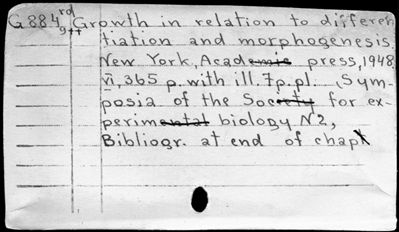 G 884 rd Growth in relation to differen
9++ tiation and morphogenesis.
New York, Academic press, 1948
VI, 365 p. with ill. 7 p. pl. (Sym-
posia of the Society for ex-
perimental biology N 2,
Bibliogr. at end of chapt